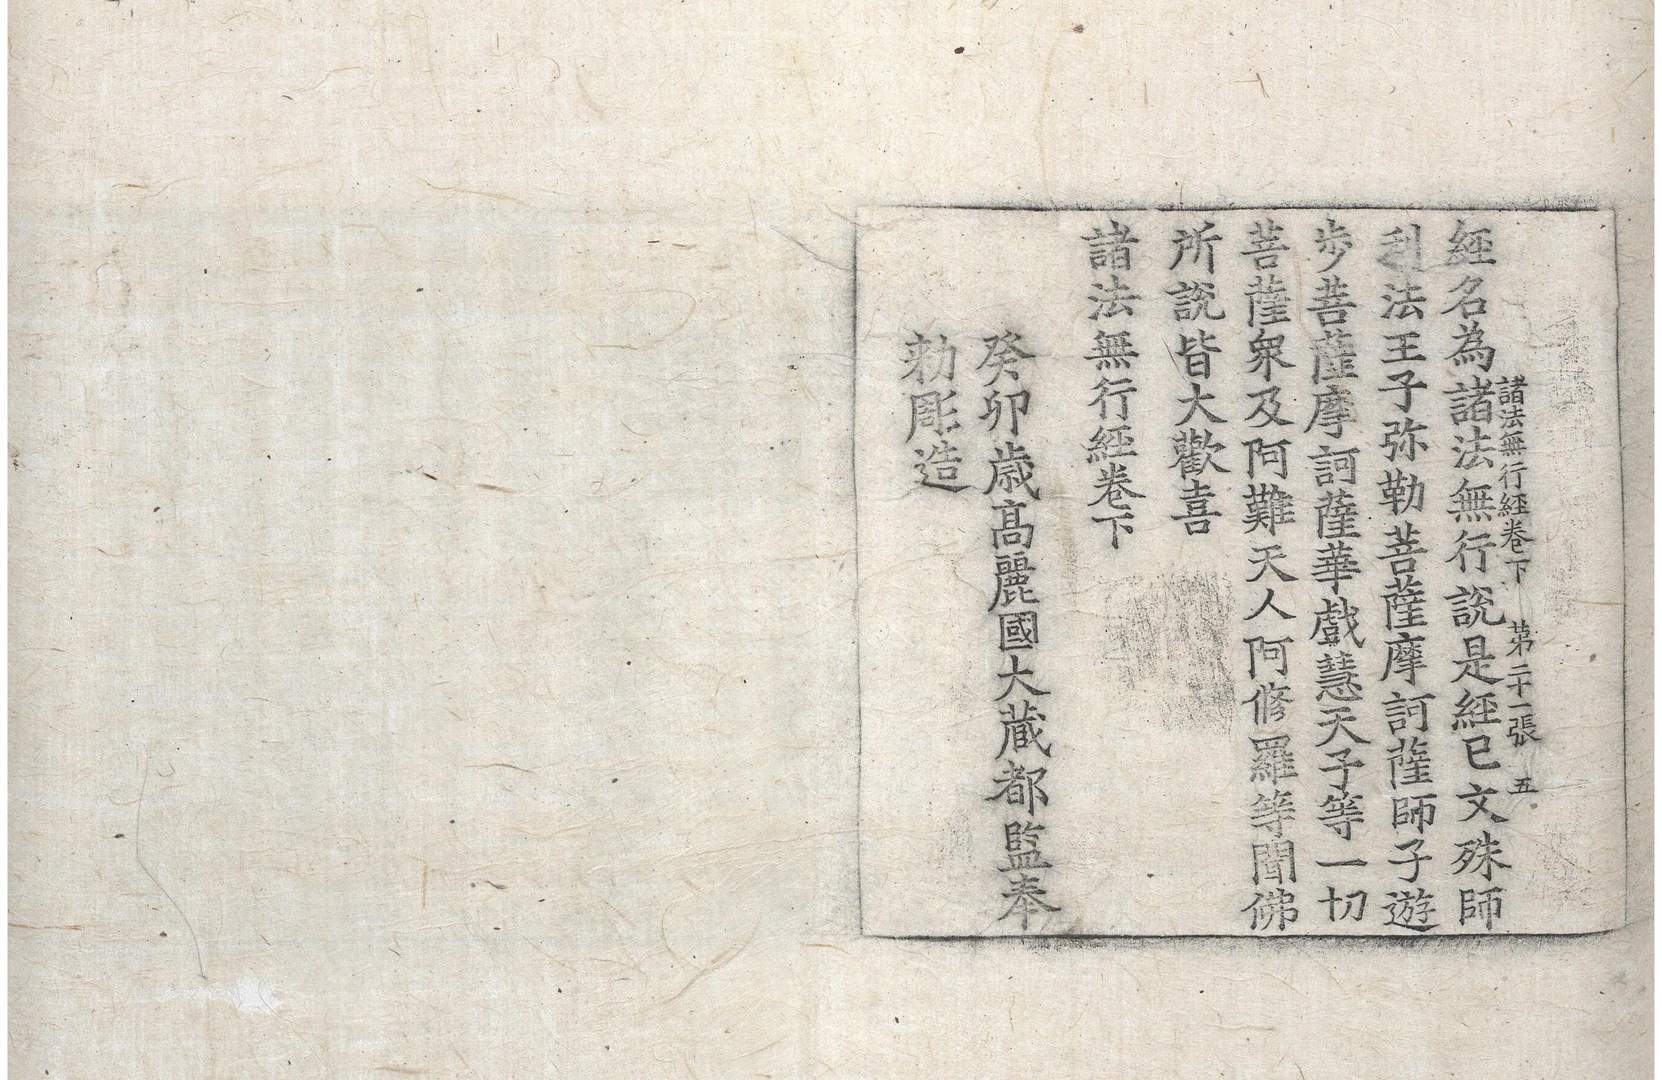 諸法無行経卷下 第二十一張 五
経名為諸法無行說是経已文殊師
利法王子弥勒菩薩摩訶薩師子遊
步菩薩摩訶薩華戲慧天子等一切
菩薩衆及阿難天人阿脩羅等聞佛
所說皆大歡喜
諸法無行経卷下
癸卯歳髙麗國大藏都監奉
勑彫造